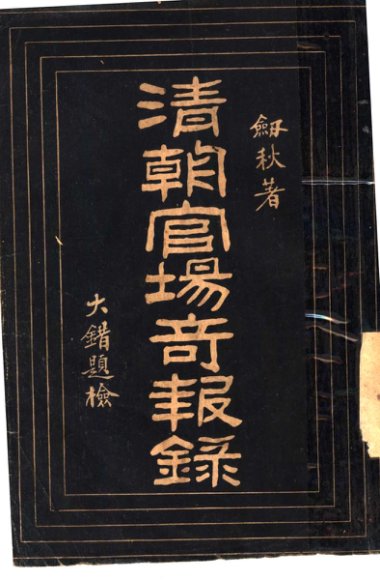 劔秋著
清朝官場奇報錄
大錯題檢